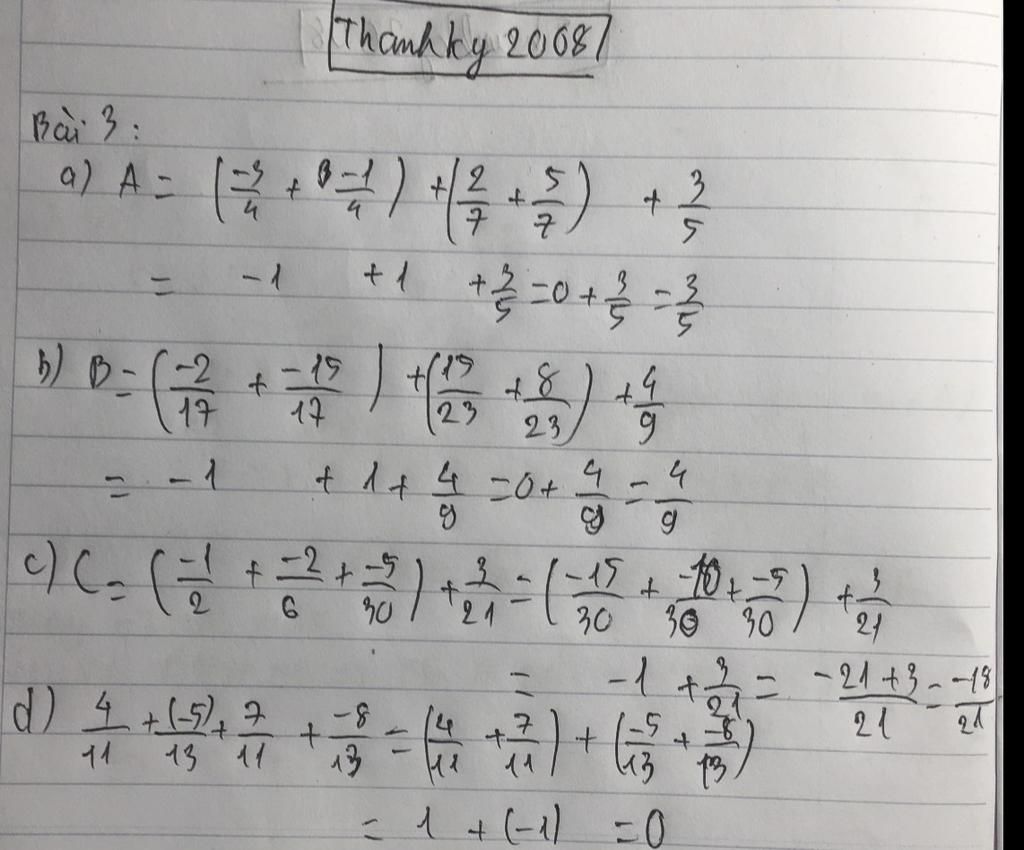 Thanhky 2008
Bài 3:
a) A = (-3/4 + -1/4) + (2/7 + 5/7) + 3/5
= -1 + 1 + 3/5 = 0 + 3/5 = 3/5
b) B = (-2/17 + -15/17) + (15/23 + 8/23) + 4/9
= -1 + 1 + 4/9 = 0 + 4/9 = 4/9
c) C = (-1/2 + -2/6 + -5/30) + 3/21 = (-15/30 + -10/30 + -5/30) + 3/21
= -1 + 3/21 = -21+3/21 = -18/21
d) 4/11 + (-5)/13 + 7/11 + -8/13 = (4/11 + 7/11) + (-5/13 + -8/13)
= 1 + (-1) = 0